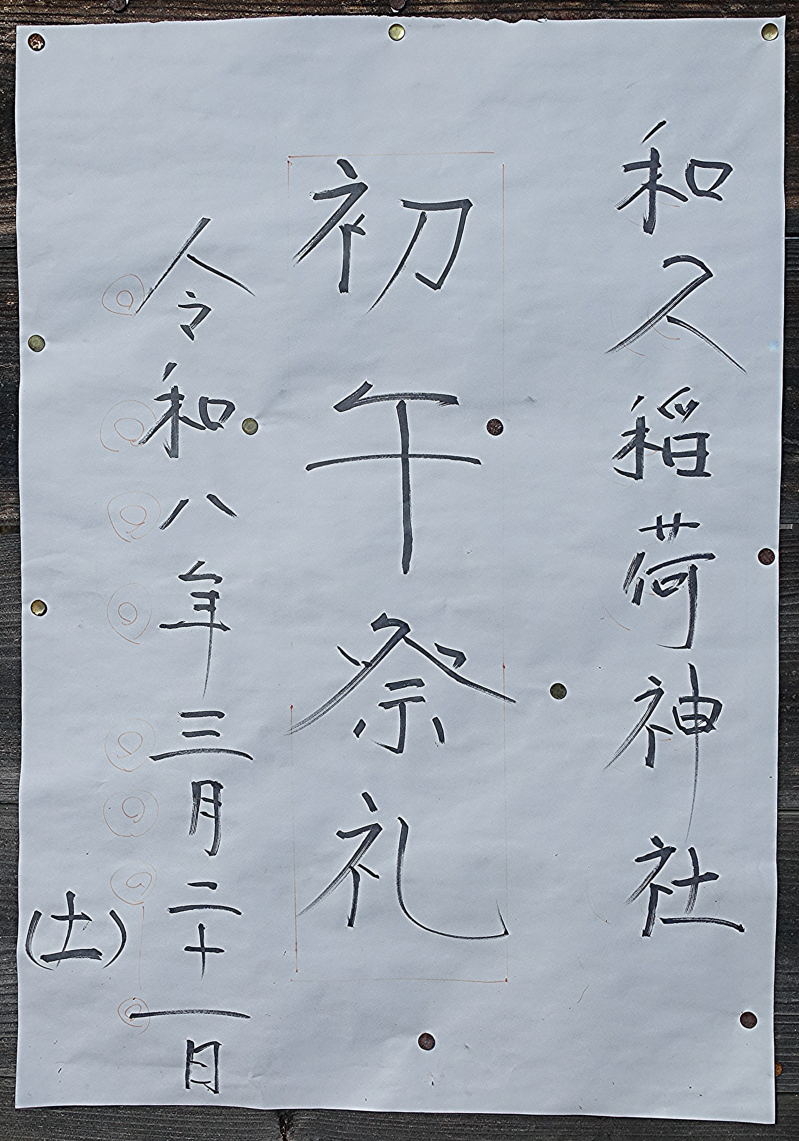 和久稲荷神社
初午祭礼
令和八年三月二十一日
(土)